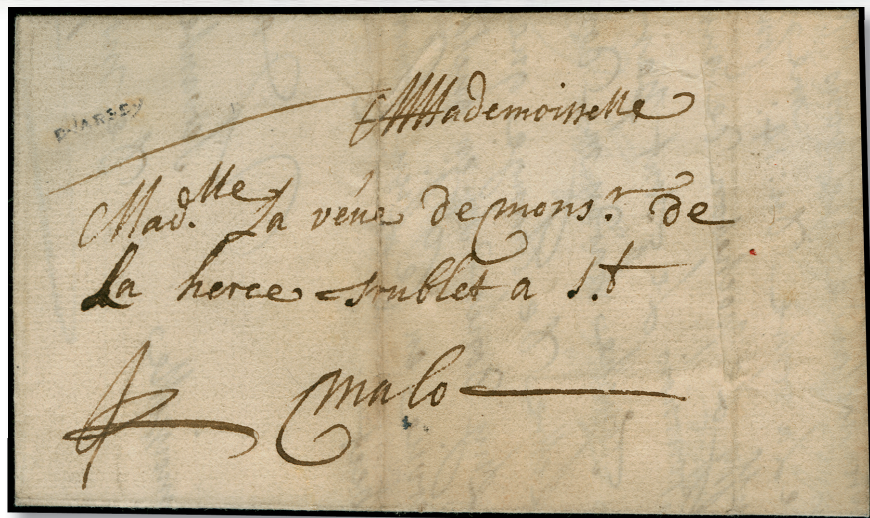 Mademoisselle
Mad.lle La véue de mons.r de
La herce Srublet a S.t
malo